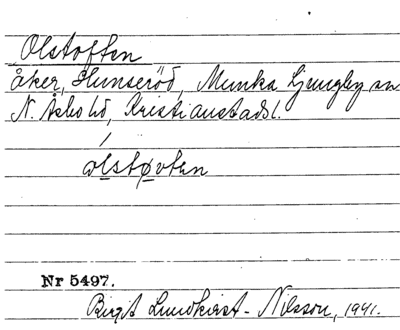 Olstoften
Åker, Hunseröd, Munka Ljungby sn
N. Åsbo hd, Kristianstads l.
olstøvten
Nr 5497.
Birgit Lundkvist-Nilsson, 1941.